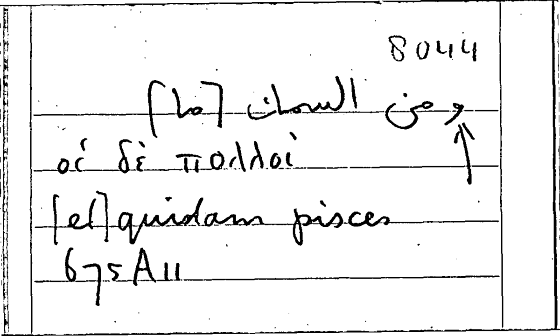 8044
ومن السمك [ما]
οἱ δὲ πολλοὶ
[et] quidam pisces
675A11